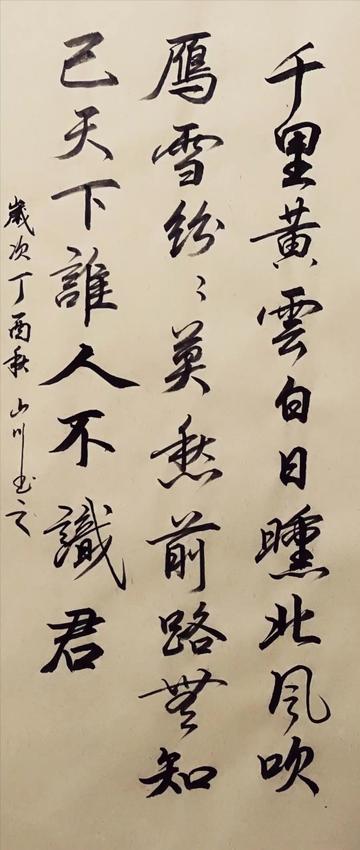 千里黄雲白日曛北风吹
鴈雪紛〻莫愁前路無知
己天下誰人不識君
歲次丁酉秋 山川书之